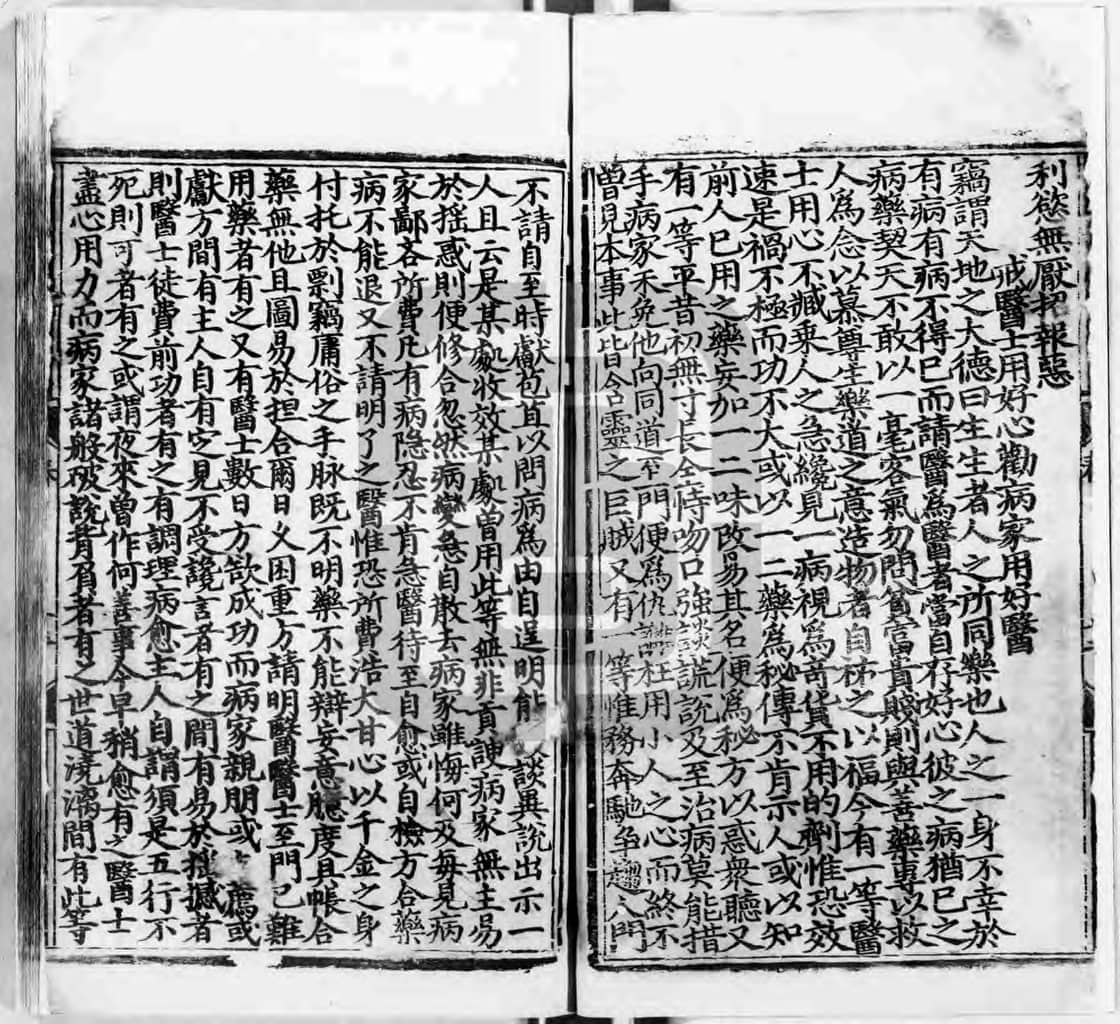 利慾無厭招報惡
戒醫士用好心勸病家用好醫
竊謂天地之大德曰生生者人之所同樂也人之一身不幸於
有病有病不得已而請醫爲醫者當自存好心彼之病猶已之
病藥契天不敢以一毫客氣勿問貧富貴賤則與善藥專以救
人爲念以慕尊生樂道之意造物者自祐之以福今有一等醫
士用心不臧乘人之急纔見一病視爲竒貨不用的劑惟恐效
速是禍不極而功不大或以一二藥爲秘傳不肯示人或以知
前人已用之藥妄加一二味改易其名便爲秘方以惑衆聽又
有一等平昔初無寸長全恃吻口強談謊說及至治病莫能措
手病家未免他向同道至門便爲仇誹謗枉用小人之心而終不
曾見本事此皆含靈之巨賊又有一等惟務奔馳爭人門
不請自至時獻苞苴以問病爲由自逞明能談異說出示一
人且云是某劇收效某劇曽用此等無非貢諛病家無主易
於摇惑則便修合忽然病變急自散去病家雖悔何及每見病
家鄙吝所費凡有病隐忍不肯急醫待至自愈或自檢方合藥
病不能退又不請明了之醫惟恐所費浩大甘心以千金之身
付托於剽竊庸俗之手脉既不明藥不能辯妄意臆度且帳合
藥無他且圖易於担合爾日乂困重方請明醫醫士至門已難
用藥者有之又有醫士數日方欲成功而病家親朋或薦或
獻方間有主人自有定見不受讒言者有之間有易於摇撼者
則醫士徒費前功者有之有調理病愈主人自謂須是五行不
死則可者有之或謂夜來曽作何善事今早稍愈有之醫士
盡心用力而病家諸般破説者有之世道澆漓間有此等